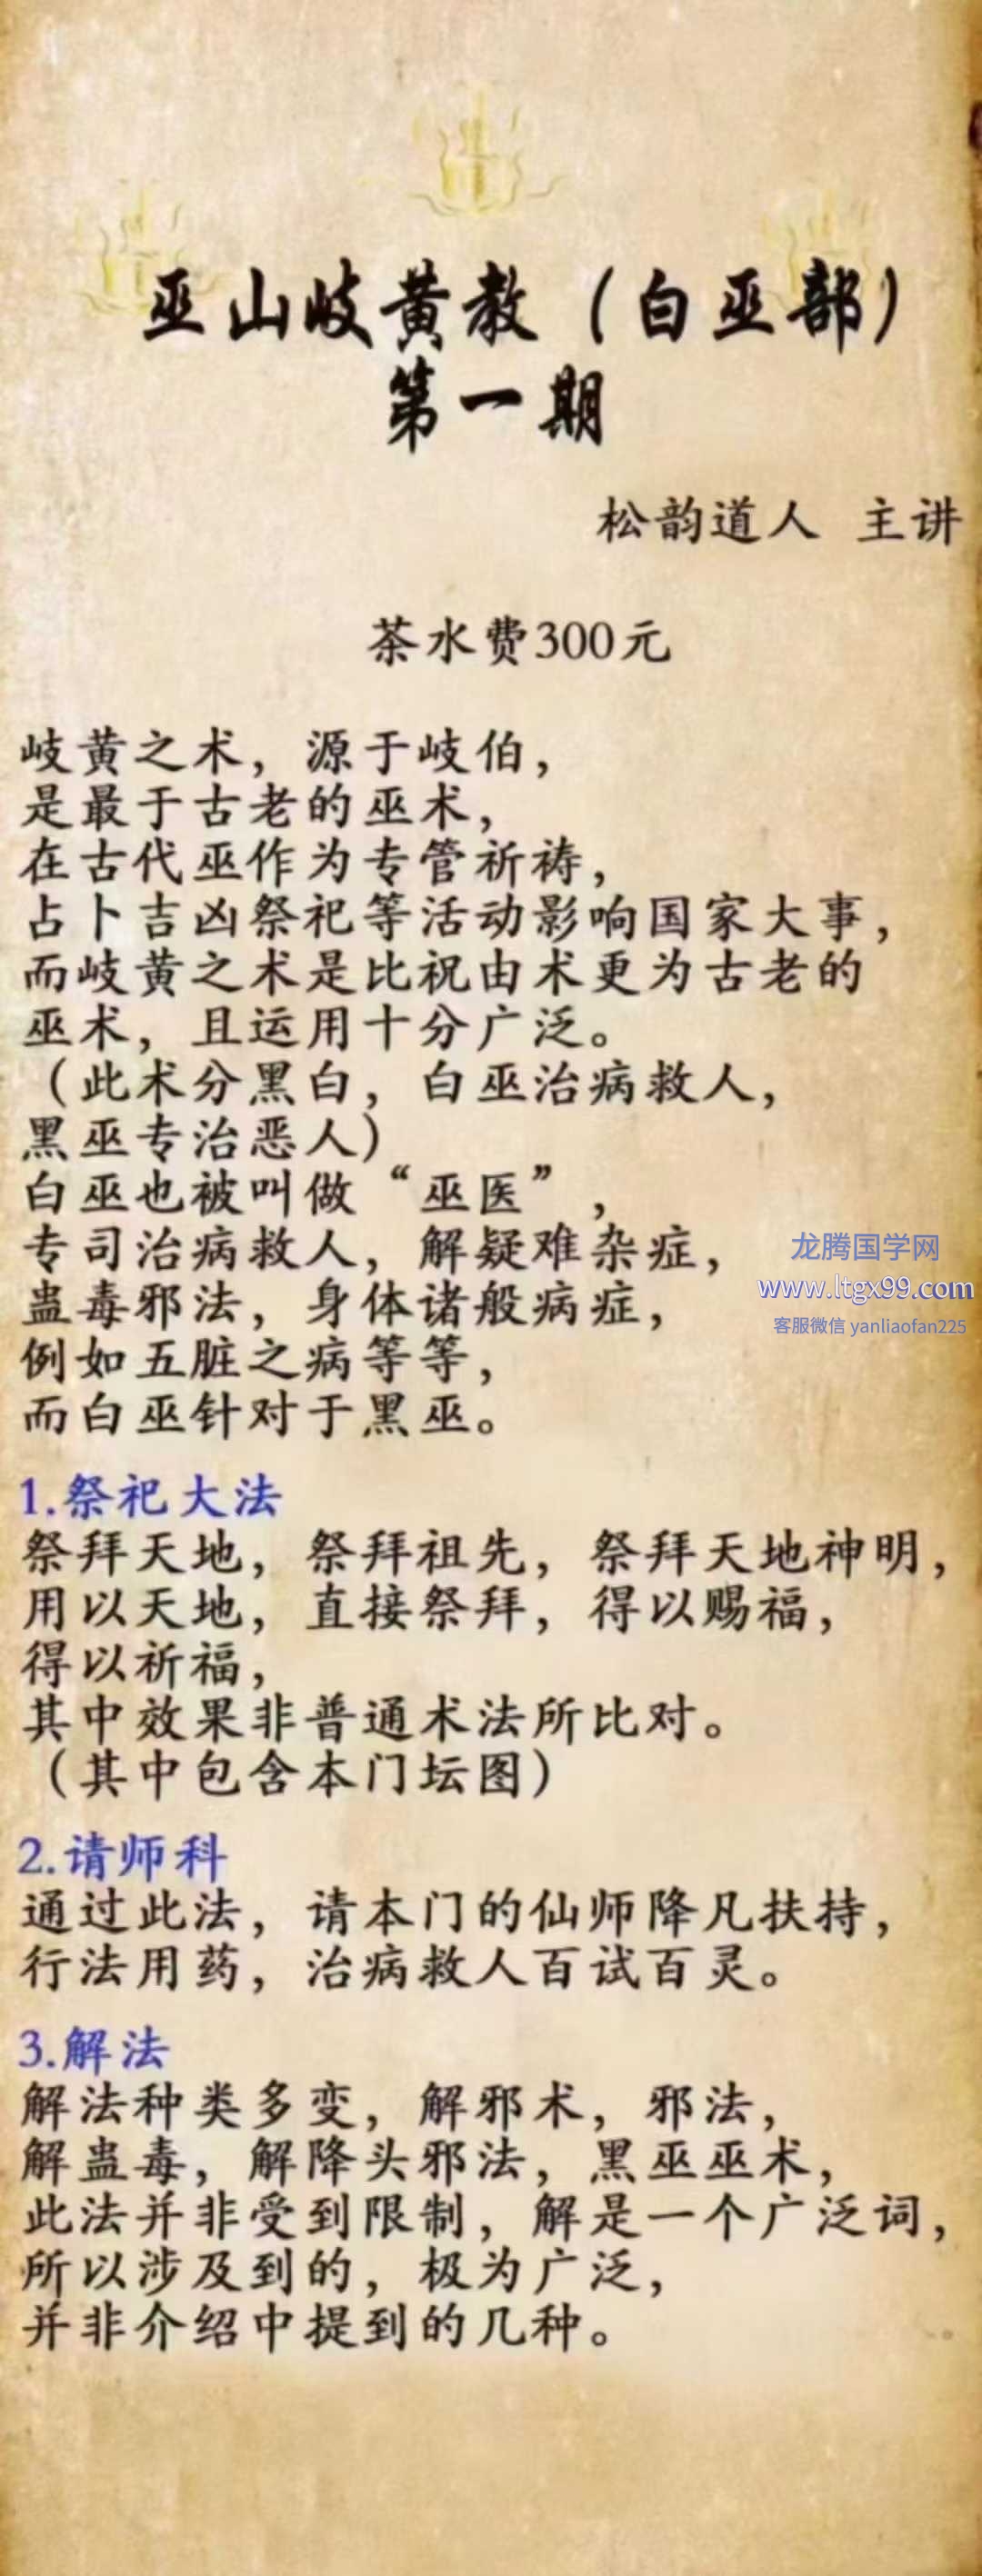 巫山岐黄教（白巫部）
第一期
松韵道人 主讲
茶水费300元
岐黄之术，源于岐伯，
是最于古老的巫术，
在古代巫作为专管祈祷，
占卜吉凶祭祀等活动影响国家大事，
而岐黄之术是比祝由术更为古老的
巫术，且运用十分广泛。
（此术分黑白，白巫治病救人，
黑巫专治恶人）
白巫也被叫做“巫医”，
专司治病救人，解疑难杂症，
蛊毒邪法，身体诸般病症，
例如五脏之病等等，
而白巫针对于黑巫。
龙腾国学网
www.ltgx99.com
客服微信 yanliaofan225
1.祭祀大法
祭拜天地，祭拜祖先，祭拜天地神明，
用以天地，直接祭拜，得以赐福，
得以祈福，
其中效果非普通术法所比对。
（其中包含本门坛图）
2.请师科
通过此法，请本门的仙师降凡扶持，
行法用药，治病救人百试百灵。
3.解法
解法种类多变，解邪术，邪法，
解蛊毒，解降头邪法，黑巫巫术，
此法并非受到限制，解是一个广泛词，
所以涉及到的，极为广泛，
并非介绍中提到的几种。